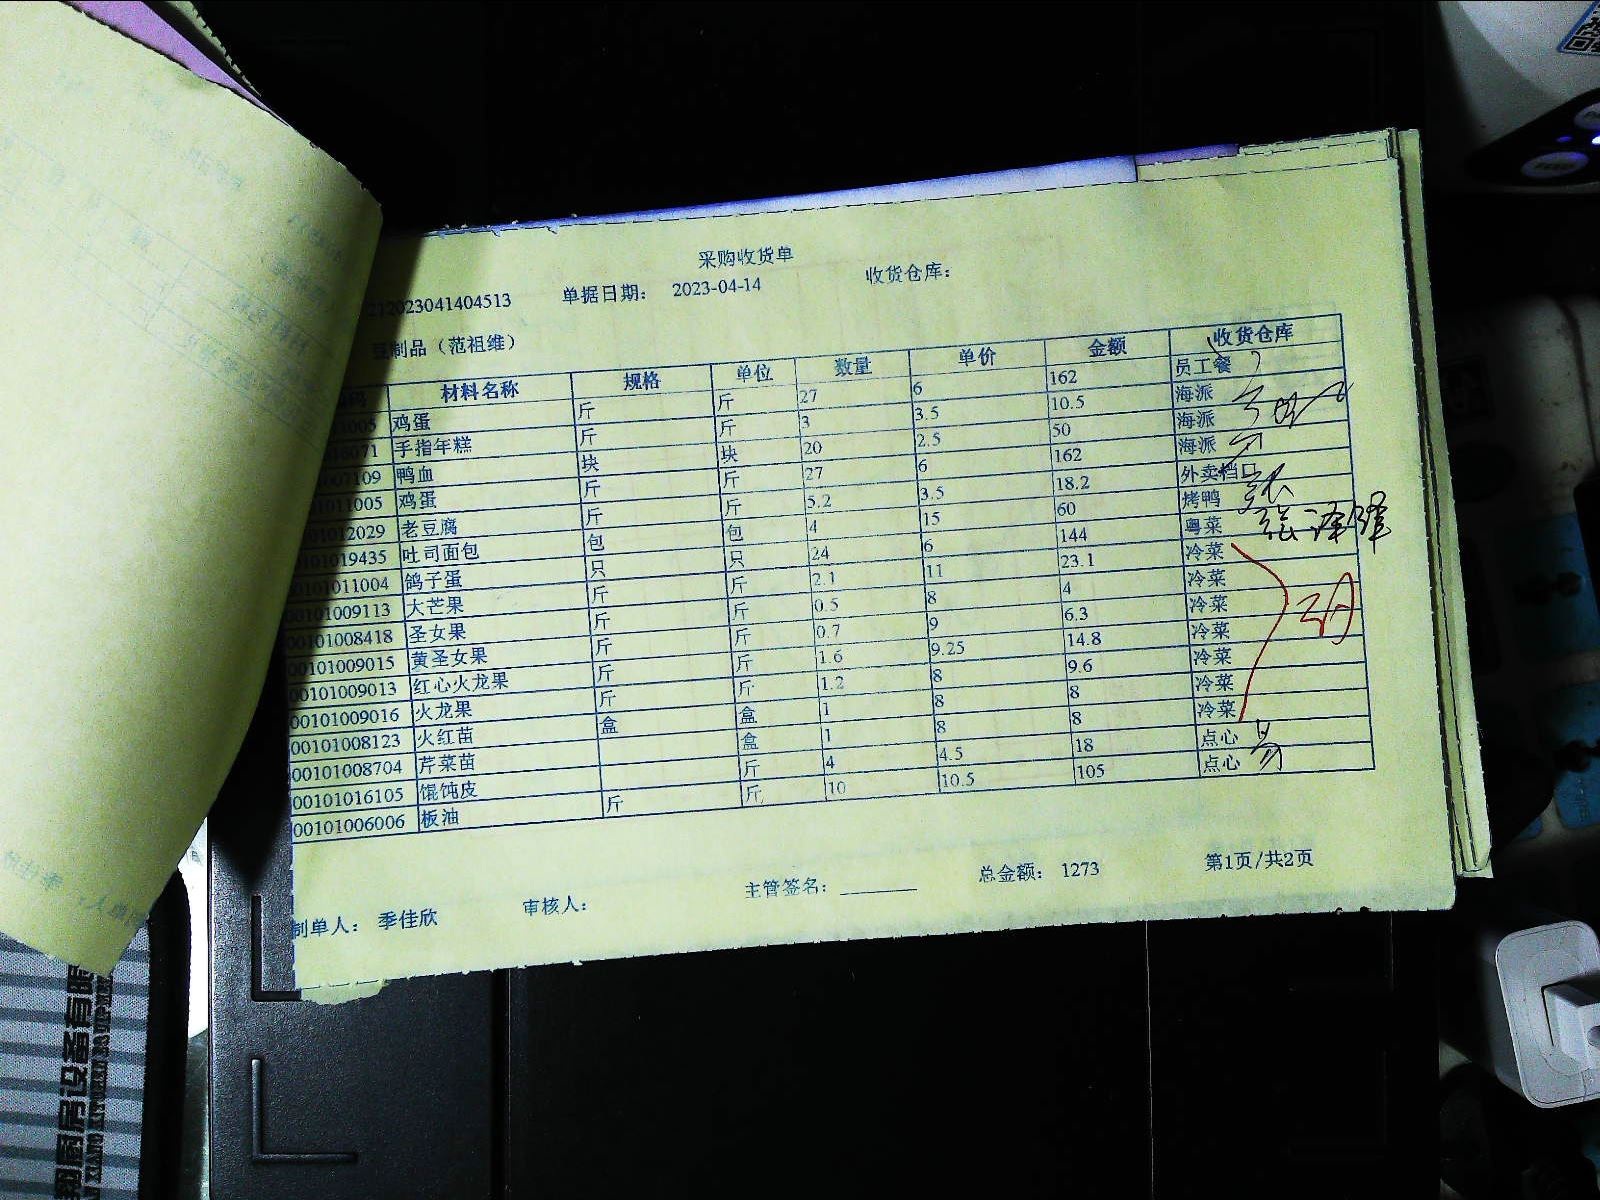 采购收货单
212023041404513 单据日期： 2023-04-14 收货仓库：
豆制品（范祖维）
材料名称 规格 单位 数量 单价 金额 收货仓库
1005 鸡蛋 斤 斤 27 6 162 员工餐
6071 手指年糕 斤 斤 3 3.5 10.5 海派
7109 鸭血 块 块 20 2.5 50 海派
01011005 鸡蛋 斤 斤 27 6 162 海派
01012029 老豆腐 斤 斤 5.2 3.5 18.2 外卖档口
101019435 吐司面包 包 包 4 15 60 烤鸭
0101011004 鸽子蛋 只 只 24 6 144 粤菜
00101009113 大芒果 斤 斤 2.1 11 23.1 冷菜
00101008418 圣女果 斤 斤 0.5 8 4 冷菜
00101009015 黄圣女果 斤 斤 0.7 9 6.3 冷菜
00101009013 红心火龙果 斤 斤 1.6 9.25 14.8 冷菜
00101009016 火龙果 斤 斤 1.2 8 9.6 冷菜
00101008123 火红苗 盒 盒 1 8 8 冷菜
00101008704 芹菜苗 盒 1 8 8 冷菜
00101016105 馄饨皮 斤 4 4.5 18 点心
00101006006 板油 斤 斤 10 10.5 105 点心
制单人： 季佳欣 审核人： 主管签名：________ 总金额： 1273 第1页/共2页
翔厨房设备有限